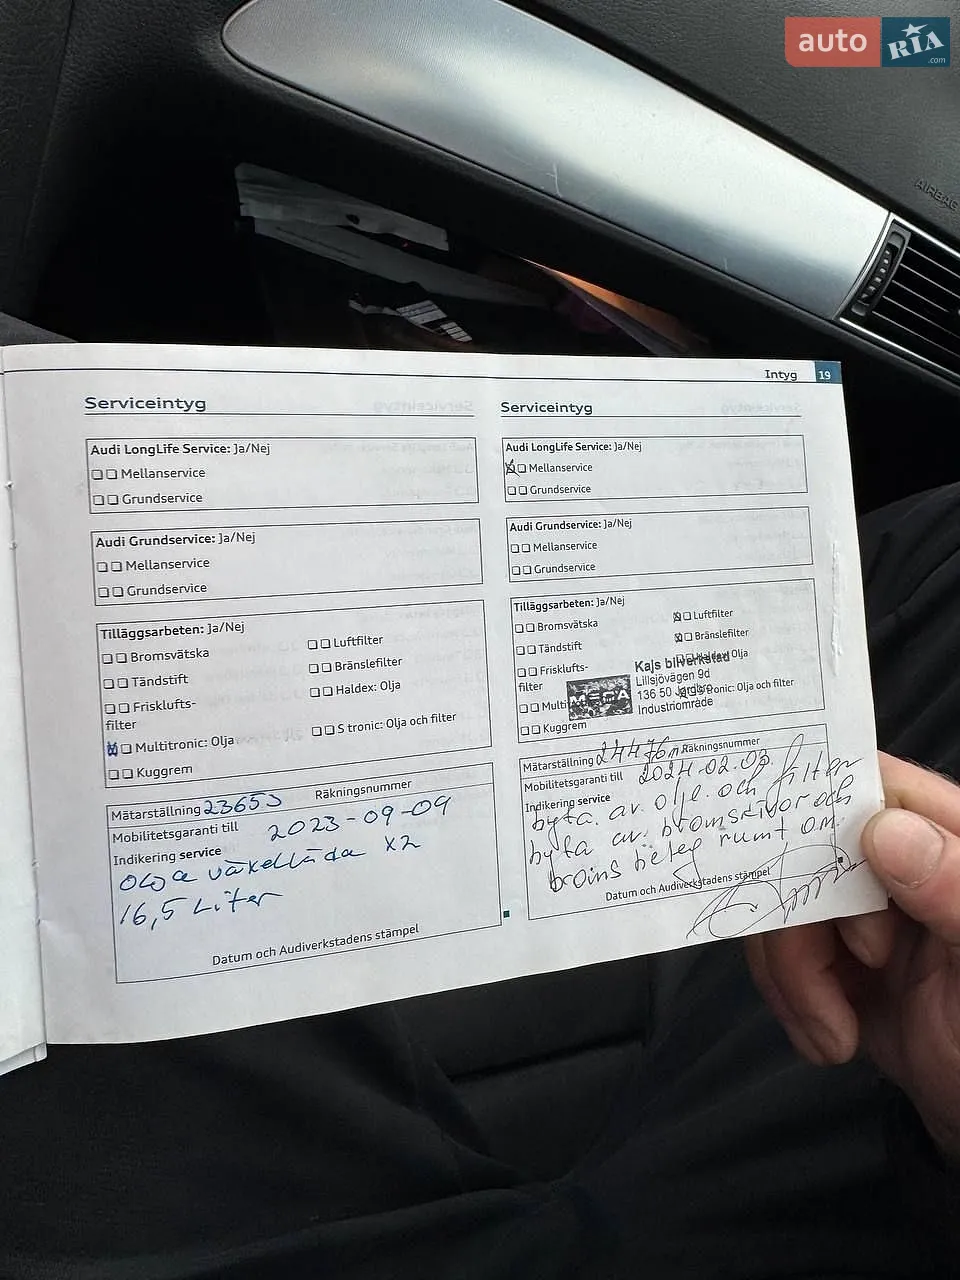 auto RIA .com
AIRBAG
Intyg 19
Serviceintyg
Audi LongLife Service: Ja/Nej
Mellanservice
Grundservice
Audi Grundservice: Ja/Nej
Mellanservice
Grundservice
Tilläggsarbeten: Ja/Nej
Bromsvätska
Luftfilter
Tändstift
Bränslefilter
Friskslufts-
filter
Haldex: Olja
Multitronic: Olja
S tronic: Olja och filter
Kuggrem
Mätarställning 23653 Räkningsnummer
Mobilitetsgaranti till 2023-09-09
Indikering service
växellåda x2
16,5 Liter
Datum och Audiverkstadens stämpel
Serviceintyg
Audi LongLife Service: Ja/Nej
Mellanservice
Grundservice
Audi Grundservice: Ja/Nej
Mellanservice
Grundservice
Tilläggsarbeten: Ja/Nej
Bromsvätska
Luftfilter
Tändstift
Bränslefilter
Friskslufts-
filter
Haldex: Olja
Kajs bilverkstad
Lillsjövägen 9d
136 50 Jordbro
Industriområde
MEGA
Multi
S tronic: Olja och filter
Kuggrem
Mätarställning 24476 Räkningsnummer
Mobilitetsgaranti till 2024.02.03.
Indikering service
byta. av. olje. och filter
byta av. bromskivor och
broms beleg runt om.
Datum och Audiverkstadens stämpel